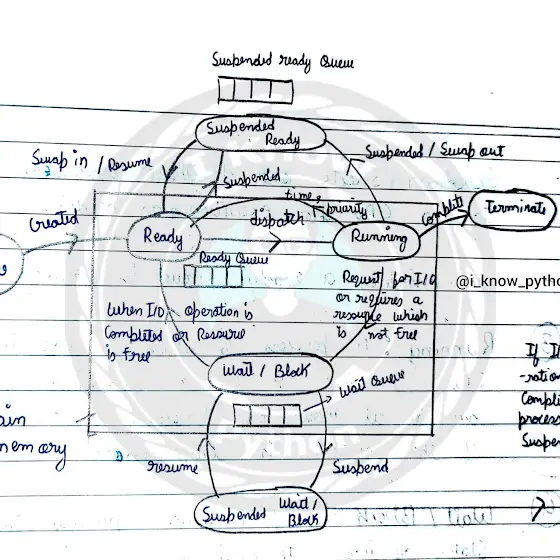 Suspended ready Queue
Suspended
Ready
Swap in / Resume
Suspended / Swap out
Suspended
time,
priority
Created
dispatch
Complete
Terminate
Ready
Running
Ready Queue
@i_know_pytho
Request for I/O
or requires a
resource which
is not free
When I/O operation is
Completed or Resource
is free
Wait / Block
Wait Queue
If I
-ratio
Compl
process
Suspe
ain
memory
resume
Suspend
Suspended Wait /
Block